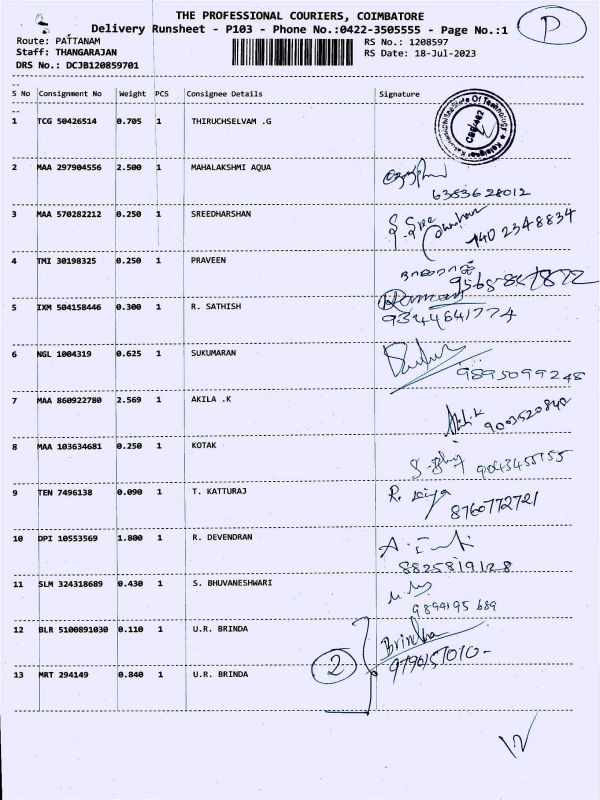 THE PROFESSIONAL COURIERS, COIMBATORE
Delivery Runsheet - P103 - Phone No.:0422-3505555 - Page No.:1
P
Route: PATTANAM
RS No.: 1208597
Staff: THANGARAJAN
RS Date: 18-Jul-2023
DRS No.: DCJB120859701
S No Consignment No Weight PCS Consignee Details Signature
1 TCG 50426514 0.705 1 THIRUCHSELVAM .G
2 MAA 297904556 2.500 1 MAHALAKSHMI AQUA
6383628012
3 MAA 570282212 0.250 1 SREEDHARSHAN
2348834
4 TMI 30198325 0.250 1 PRAVEEN
5 IXM 504158446 0.300 1 R. SATHISH
9344641774
6 NGL 1004319 0.625 1 SUKUMARAN
9895099248
7 MAA 860922780 2.569 1 AKILA .K
9003520840
8 MAA 103634681 0.250 1 KOTAK
9 TEN 7496138 0.090 1 T. KATTURAJ
8760772721
10 DPI 10553569 1.800 1 R. DEVENDRAN
8825819128
11 SLM 324318689 0.430 1 S. BHUVANESHWARI
12 BLR 5100891030 0.110 1 U.R. BRINDA
Brindha
2
13 MRT 294149 0.840 1 U.R. BRINDA